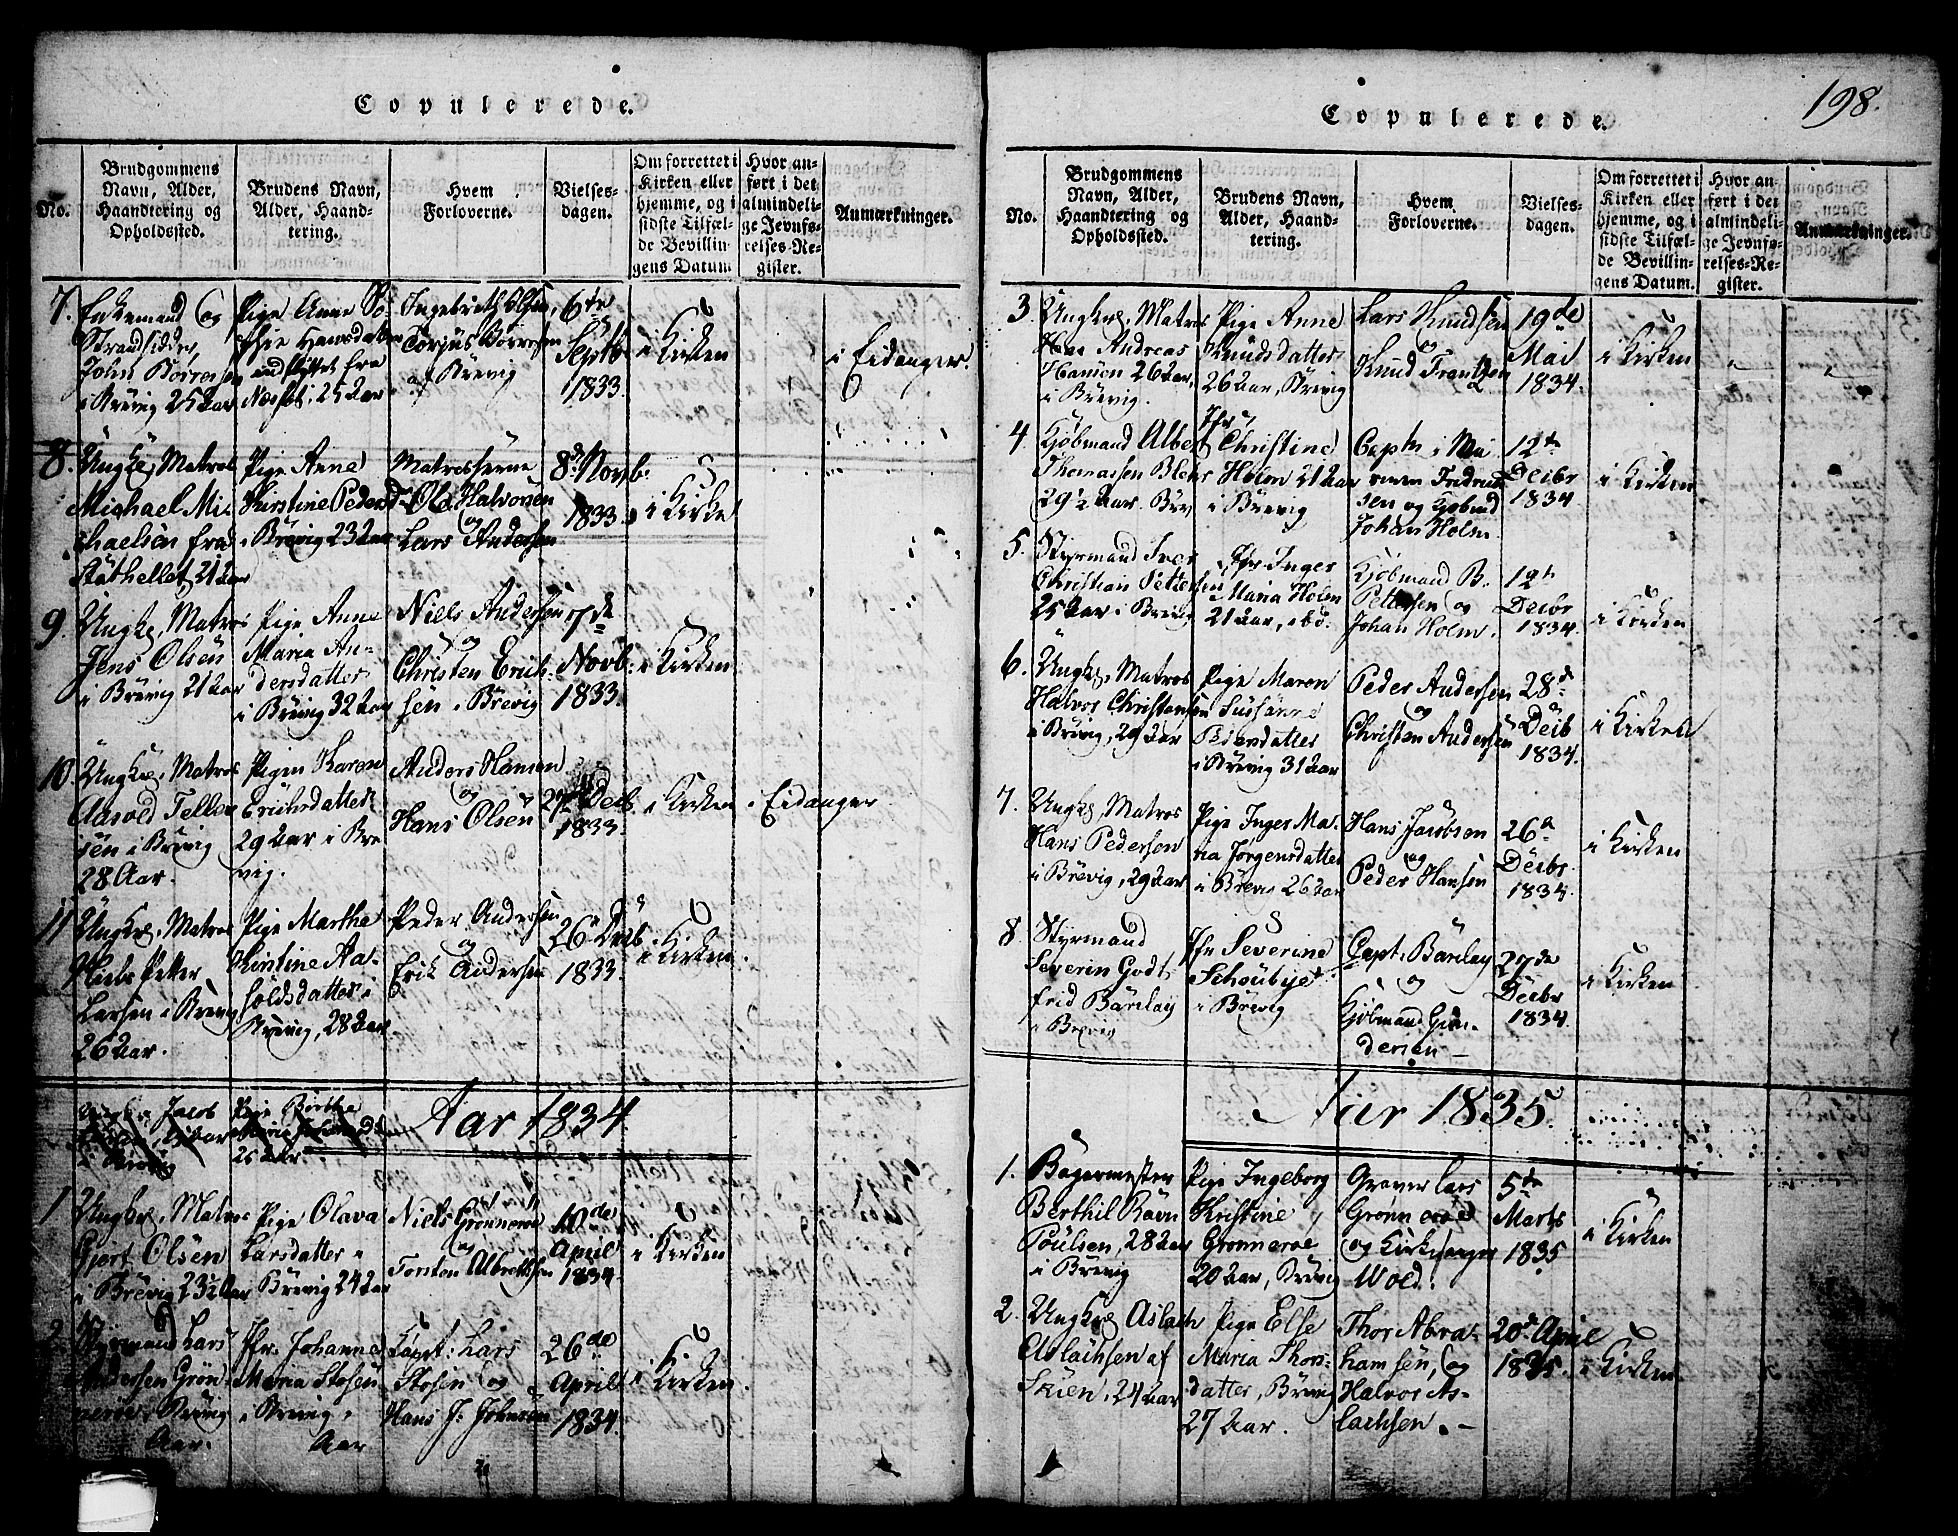 Copulerede.
No.
Brudgommens Navn, Alder, Haandtering og Opholdssted.
Brudens Navn, Alder, Haandtering.
Hvem Forloverne.
Vielsesdagen.
Om forrettet i Kirken eller hjemme, og i sidste Tilfælde Bevillingens Datum
Hvor anført i det almindelige Jevnførelses-Register.
Anmærkninger.
7.
Enkemand og
Strandsidder
John Börresen
i Brevig 25 Aar
Pige Anne So
phie Hansdatter
fra
25 Aar
Ingebreth Olsen,
Torjus Börresen
af Brevig
6te
Septb
1833.
i Kirken
i Eidanger.
8.
Ungk, Matros
Michael Mi
chaelsen fra
Stathellet 21 Aar
Pige Anne
Kirstine Pedersd
i Brevig 23 Aar
Matroserne
Ole Halvorsen
og
Lars Andersen
8d Novb
1833.
i Kirke
9.
Ungk, Matros
Jens Olsen
i Brevig 21 Aar
Pige Anne
Maria An-
dersdatter
i Brevig 32 Aar
Niels Andersen
og
Christen Erich-
sen i Brevig
7de
Novb.
1833.
i Kirken
10.
Ungk, Matros
Aasold Tellef
sen i Brevig
28 Aar.
Pigen Karen
Erichsdatter
29 Aar i Bre
vig.
Anders Hansen
og
Hans Olsen
Decb
1833.
i Kirken
i Eidanger
11
Ungk, Matros
Niels Petter
Larsen i Brevig
26 Aar.
Pige Marthe
Kirstine Aa-
soldsdatter i
Brevig, 28 Aar.
Peder Andersen
og
Erik Andersen
26 Decb
1833.
i Kirken.
Jacob
i Brevig
Pige Berthe
25 Aar
Aar 1834
1
Ungk, Matros
Gjert Olsen
i Brevig 23½ Aar
Pige Olava
Larsdatter i
Brevig 24 Aar
Niels Grönnerøe
og
Torsten Albretsen
10de
April
1834.
i Kirken
2.
Styrmand Lars
Andersen Grön-
nerøe i Brevig
Aar.
Jfr. Johanne
Maria Stosen
i Brevig
Aar
Capt: Lars
Stosen og
Hans J. Johnsen
26de
April
1834.
i Kirken.
Copulerede.
198.
No.
Brudgommens Navn, Alder, Haandtering og Opholdssted.
Brudens Navn, Alder, Haandtering.
Hvem Forloverne.
Vielsesdagen.
Om forrettet i Kirken eller hjemme, og i sidste Tilfælde Bevillingens Datum.
Hvor anført i det almindelige Jevnførelses-Register.
Anmærkninger.
3.
Ungk, Matros
Hans Andreas
Hansen 26 Aar,
i Brevig.
Pige Anne
Knudsdatter
26 Aar, Brevig
Lars Knudsen
og
Knud Frantzen
19de
Mai
1834.
i Kirken
4.
Kjöbmand Albert
Thomassen Blehr
29½ Aar. Brev
Jfr
Christine
Holm 21 Aar
i Brevig
Captn i Ma
rinen Fredrik
sen og Kjöbmd
Johan Holm.
12te
Decbr
1834.
i Kirken
5.
Styrmand Iver
Christian Pettersen
25 Aar i Brevig
Jfr Inger
Maria Holm
21 Aar, ibd.
Kjöbmand B.
Pettersen og
Johan Holm.
12te
Decbr
1834.
i Kirken
6.
Ungk, Matros
Halvor Christensen
i Brevig, 29 Aar
Pige Maren
Sussanne
Pedersdatter
i Brevig 31 Aar
Peder Andersen
og
Christen Andersen
28d
Decb
1834.
i Kirken
7.
Ungk, Matros
Hans Pedersen
i Brevig, 29 Aar
Pige Inger Ma-
ria Jörgensdatter
i Brevig 26 Aar
Hans Jacobsen
og
Peder Hansen
26d
Decbr
1834.
i Kirken
8.
Styrmand
Severin Godt
fried Barclay
i Brevig
Jfr Severine
Schoubye
i Brevig
Capt. Barclay
og
Kjöbmand Gun-
dersen
27de
Decbr
1834.
i Kirken
Aar 1835.
1.
Bagermester
Berthil Ravn
Poulsen, 28 Aar
i Brevig
Pige Ingeborg
Kristine
Grönnerøe
20 Aar, Brevig
Graver Lars
Grönnerøe
og Kirkesanger
Wold.
5te
Marts
1835
i Kirken
2.
Ungk Aslach
Aslachsen af
Skien, 24 Aar
Pige Else
Maria Thors-
datter, Brevig
27 Aar.
Thor Abra-
hamsen, og
Halvor As-
lachsen.
20d April
1835.
i Kirken